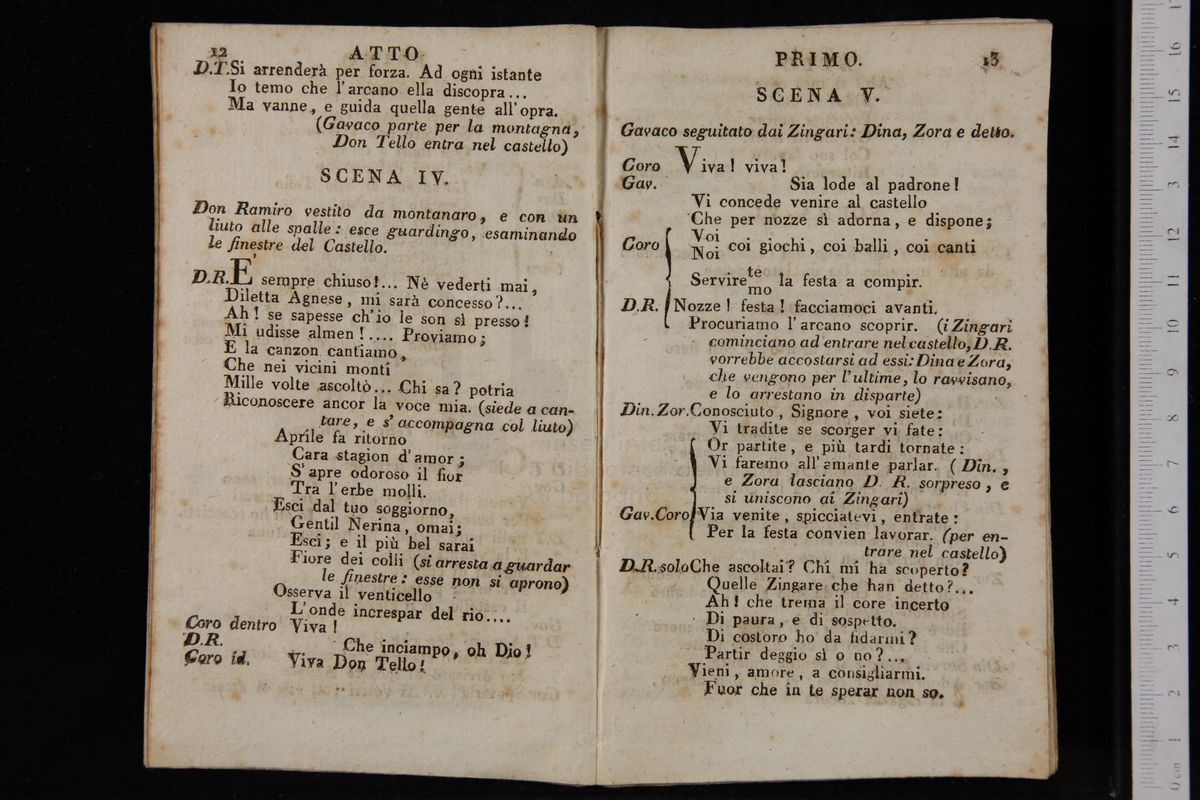 12 ATTO
D.T. Si arrenderà per forza. Ad ogni istante
Io temo che l'arcano ella discopra...
Ma vanne, e guida quella gente all'opra.
(Gavaco parte per la montagna,
Don Tello entra nel castello)
SCENA IV.
Don Ramiro vestito da montanaro, e con un
liuto alle spalle: esce guardingo, esaminando
le finestre del Castello.
D.R. E' sempre chiuso!... Nè vederti mai,
Diletta Agnese, mi sarà concesso?...
Ah! se sapesse ch'io le son sì presso!
Mi udisse almen!.... Proviamo;
E la canzon cantiamo,
Che nei vicini monti
Mille volte ascoltò... Chi sa? potria
Riconoscere ancor la voce mia. (siede a can-
tare, e s'accompagna col liuto)
Aprile fa ritorno
Cara stagion d'amor;
S'apre odoroso il fior
Tra l'erbe molli.
Esci dal tuo soggiorno,
Gentil Nerina, omai;
Esci; e il più bel sarai
Fiore dei colli (si arresta a guardar
le finestre: esse non si aprono)
Osserva il venticello
L'onde increspar del rio....
Coro dentro Viva!
D.R. Che inciampo, oh Dio!
Coro id. Viva Don Tello!
PRIMO. 13
SCENA V.
Gavaco seguitato dai Zingari: Dina, Zora e detto.
Coro Viva! viva!
Gav. Sia lode al padrone!
Vi concede venire al castello
Che per nozze sì adorna, e dispone;
Voi
Coro Noi coi giochi, coi balli, coi canti
te
Servire mo la festa a compir.
D.R. Nozze! festa! facciamoci avanti.
Procuriamo l'arcano scoprir. (i Zingari
cominciano ad entrare nel castello, D.R.
vorrebbe accostarsi ad essi: Dina e Zora,
che vengono per l'ultime, lo ravvisano,
e lo arrestano in disparte)
Din. Zor. Conosciuto, Signore, voi siete:
Vi tradite se scorger vi fate:
Or partite, e più tardi tornate:
Vi faremo all'amante parlar. (Din.,
e Zora lasciano D. R. sorpreso, e
si uniscono ai Zingari)
Gav. Coro Via venite, spicciatevi, entrate:
Per la festa convien lavorar. (per en-
trare nel castello)
D.R. solo Che ascoltai? Chi mi ha scoperto?
Quelle Zingare che han detto?...
Ah! che trema il core incerto
Di paura, e di sospetto.
Di costoro ho da fidarmi?
Partir deggio sì o no?...
Vieni, amore, a consigliarmi.
Fuor che in te sperar non so.
17
16
15
14
13
12
11
10
9
8
7
6
5
4
3
2
1
0 cm